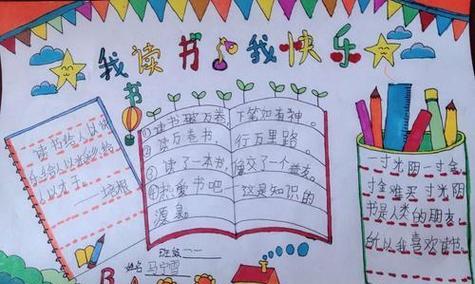 我读书我快乐
读书给人以
给人以
人以才干。
——培根
书
①读书破万卷,下笔如有神。
②读万卷书,行万里路。
③读了一本书,像交了一个益友。
④热爱书吧——这是知识的
源泉。
班级 一一
姓名 马宁雪
一寸光阴一寸金,
寸金难买寸光阴
书是人类的朋友,
所以我喜欢读书